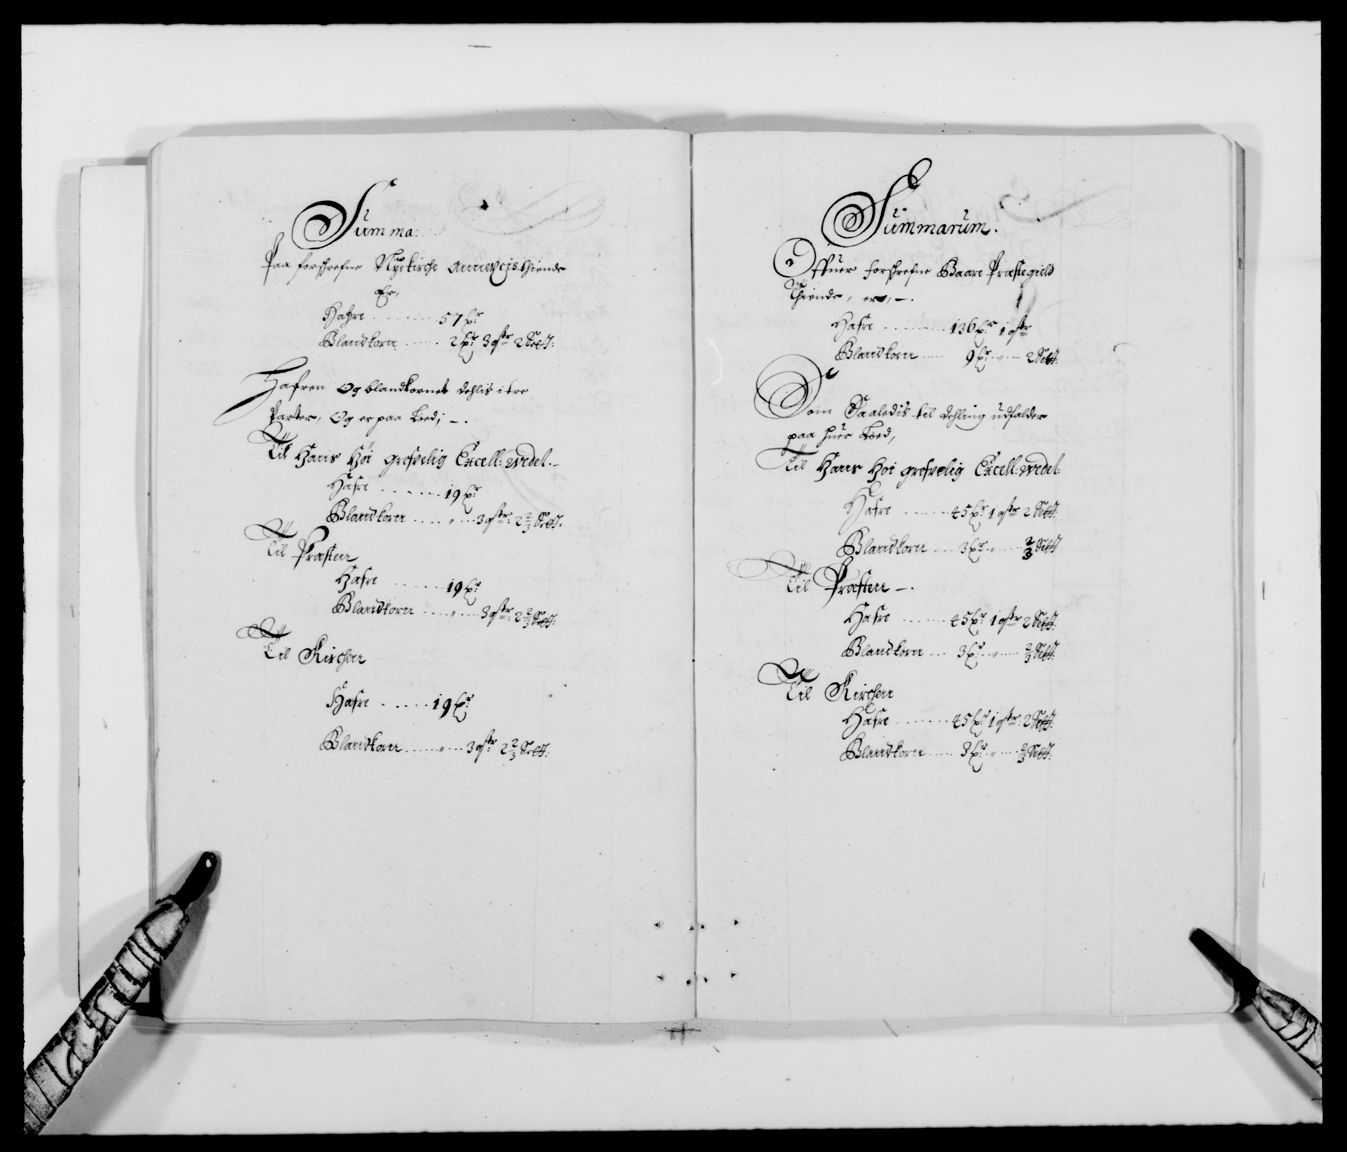 Summa:
Paa forschrefne Nyekirche Annexis thiende
Er,
Hafre ........ 57 pr
Blandkorn ...... 2 pr 3 qtr 2 Sett:
Hafren Og blandkornet dehlis itre
Parter, Og er paa Loed; —.
Til Hans Høi grefvelig Excell: Wedel.—
Hafre ....... 19 pr
Blandkorn .... " ... 3 qtr: 2 2/3 Sett.
Til Præsten
Hafre ...... 19 pr
Blandkorn .... " ... 3 qtr: 2 2/3 Sett:
Til Kirchen
Hafre ..... 19 pr
Blandkorn ..... " ... 3 qtr 2 2/3 Sett:
Summarum.
Offuer forschrefne Baare Præstegield
Thiende, er, —.
Hafre ........ 136 pr 1 qtr
Blandkorn .... 9 pr " ... 2 Sett.
Som Saaledis til dehling udfalder
paa huer Loed,
Til Hans Høi grefvelig Excell: Wedel
Hafre ...... 45 pr 1 qtr 2 Sett.
Blandkorn .... 3 pr " ... 2/3 Sett
Til Præsten —.
Hafre ....... 45 pr 1 qtr 2 Sett.
Blandkorn ... 3 pr " ... 2/3 Sett.
Til Kirchen
Hafre ....... 45 pr 1 qtr 2 Sett.
Blandkorn ..... 3 pr " ... 2/3 Sett.